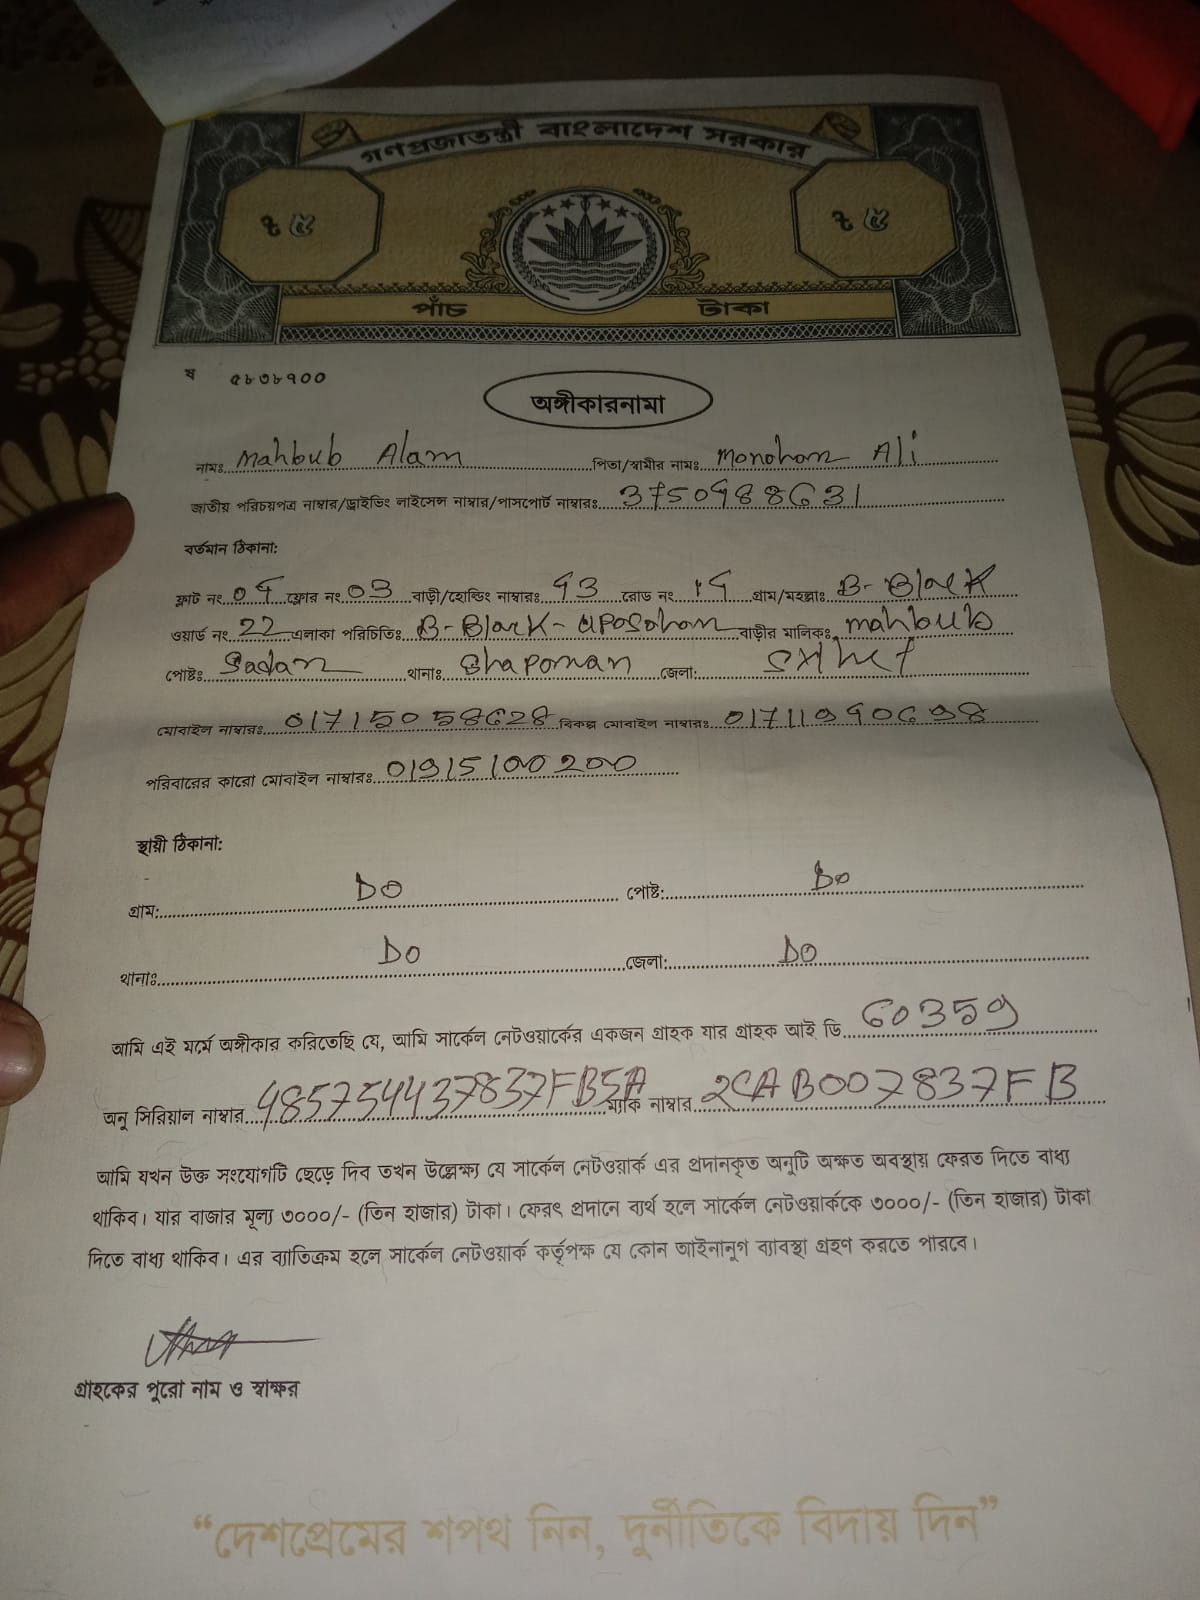 গণপ্রজাতন্ত্রী বাংলাদেশ সরকার
৳ ৫ ৳ ৫
পাঁচ টাকা
ষ ৫৮৩৮৭০০
অঙ্গীকারনামা
নামঃ Mahbub Alam পিতা/স্বামীর নামঃ Monohor Ali
জাতীয় পরিচয়পত্র নাম্বার/ড্রাইভিং লাইসেন্স নাম্বার/পাসপোর্ট নাম্বারঃ
বর্তমান ঠিকানা:
ফ্লাট নং ফ্লোর নং 03 বাড়ী/হোল্ডিং নাম্বারঃ রোড নং গ্রাম/মহল্লাঃ B-Block
ওয়ার্ড নং 22 এলাকা পরিচিতিঃ B-Block- বাড়ীর মালিকঃ mahbub
পোষ্টঃ Sadar থানাঃ জেলা:
মোবাইল নাম্বারঃ বিকল্প মোবাইল নাম্বারঃ
পরিবারের কারো মোবাইল নাম্বারঃ 01915100200
স্থায়ী ঠিকানা:
গ্রাম: DO পোষ্ট: Do
থানাঃ DO জেলা: DO
আমি এই মর্মে অঙ্গীকার করিতেছি যে, আমি সার্কেল নেটওয়ার্কের একজন গ্রাহক যার গ্রাহক আই ডি 60359
অনু সিরিয়াল নাম্বার 485754437837FB5A ম্যাক নাম্বার 2CAB007837FB
আমি যখন উক্ত সংযোগটি ছেড়ে দিব তখন উল্লেক্ষ্য যে সার্কেল নেটওয়ার্ক এর প্রদানকৃত অনুটি অক্ষত অবস্থায় ফেরত দিতে বাধ্য
থাকিব। যার বাজার মূল্য ৩০০০/- (তিন হাজার) টাকা। ফেরৎ প্রদানে ব্যর্থ হলে সার্কেল নেটওয়ার্ককে ৩০০০/- (তিন হাজার) টাকা
দিতে বাধ্য থাকিব। এর ব্যাতিক্রম হলে সার্কেল নেটওয়ার্ক কর্তৃপক্ষ যে কোন আইনানুগ ব্যাবস্থা গ্রহণ করতে পারবে।
গ্রাহকের পুরো নাম ও স্বাক্ষর
“দেশপ্রেমের শপথ নিন, দুর্নীতিকে বিদায় দিন”